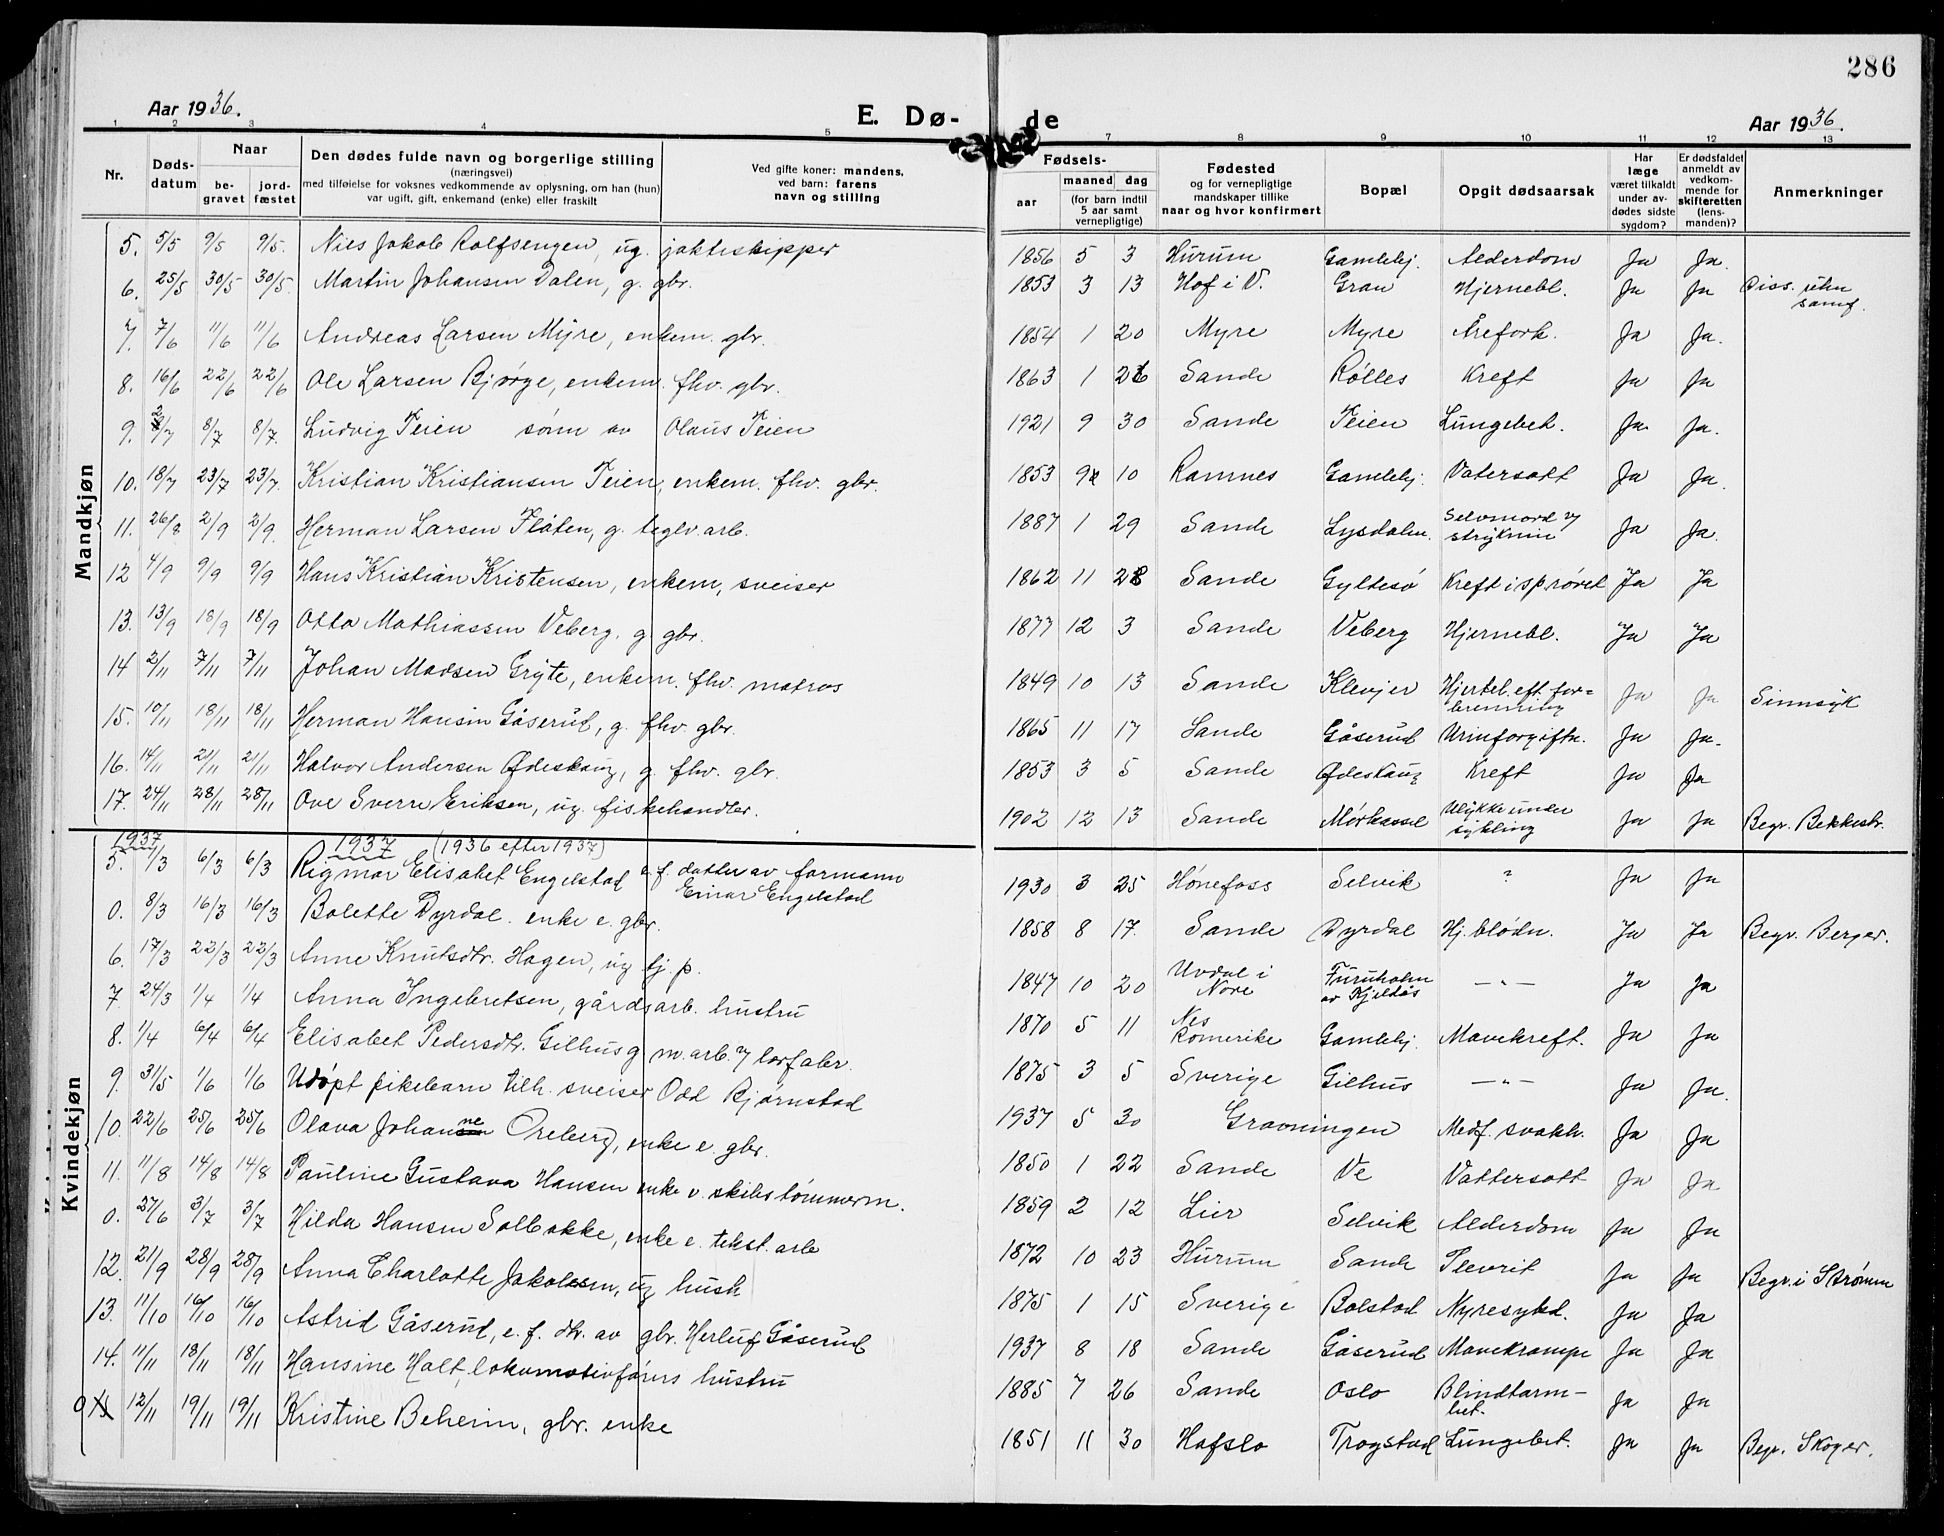 286
Aar 1936.
E. Dø-
de
Aar 1936.
1 2 3 4 5 7 8 9 10 11 12 13
Nr.
Døds-
datum
Naar
be-
gravet
jord-
fæstet
Den dødes fulde navn og borgerlige stilling
(næringsvei)
med tilføielse for voksnes vedkommende av oplysning, om han (hun)
var ugift, gift, enkemand (enke) eller fraskilt
Ved gifte koner: mandens,
ved barn: farens
navn og stilling
Fødsels-
aar
maaned dag
(for barn indtil
5 aar samt
vernepligtige)
Fødested
og for vernepligtige
mandskaper tillike
naar og hvor konfirmert
Bopæl
Opgit dødsaarsak
Har
læge
været tilkaldt
under av-
dødes sidste
sygdom?
Er dødsfaldet
anmeldt av
vedkom-
mende for
skifteretten
(lens-
manden)?
Anmerkninger
Mandkjøn
5. 5/5 9/5 9/5. Nils Jakob Rolfsengen, ug. jakteskipper 1856 5 3 Hurum Gamlehj. Alderdom Ja Ja.
6. 25/5 30/5 30/5. Martin Johansen Dalen, g. gbr. 1853 3 13 Hof i V. Gran Hjernebl. Ja Ja Diss. uten samf.
7. 7/6 11/6 11/6 Andreas Larsen Myre, enkem. gbr. 1854 1 20 Myre Myre Årefork. Ja Ja.
8. 16/6 22/6 22/6 Ole Larsen Bjørge, enkem. fhv. gbr. 1863 1 26 Sande Rølles Kreft Ja Ja
9. 2/7 8/7 8/7. Ludvig Teien sønn av Olaus Teien 1921 9 30 Sande Teien Lungebet. Ja Ja.
10. 18/7 23/7 23/7. Kristian Kristiansen Teien, enkem. fhv. gbr. 1853 9 10 Ramnes Gamlehj. Vatersott Ja Ja.
11. 26/8 2/9 2/9. Herman Larsen Fløten, g. teglv.arb. 1887 1 29 Sande Lysdalen. Selvmord v/ stryknin Ja Ja.
12 4/9 9/9 9/9 Hans Kristian Kristensen, enkem, sveiser 1862 11 28 Sande Gyltesø Kreft i sprøret Ja Ja
13. 13/9 18/9 18/9 Otto Mathiassen Veberg, g gbr. 1877 12 3 Sande Veberg Hjernebl. Ja Ja
14 2/11 7/11 7/11 Johan Madsen Gryte, enkem. fhv. matros 1849 10 13 Sande Klevjer Hjertel. eft. for= brenning Ja Ja Sinnsyk
15. 10/11 18/11 18/11 Herman Hansen Gåserud, g. fhv. gbr. 1865 11 17 Sande Gåserud Urinforgiftn. Ja Ja.
16. 14/11 21/11 21/11 Halvor Andersen Ødeskaug, g. fhv. gbr. 1853 3 5 Sande Ødeskaug Kreft Ja Ja
17. 24/11 28/11 28/11 Ove Sverre Eriksen, ug. fiskehandler. 1902 12 13 Sande Mørkassel Ulykke under sykling Ja Ja Begr. Bekkestr.
Kvindekjøn
1937 1937 (1936 efter 1937)
5. 1/3 6/3 6/3 Rigmor Elisabet Engelstad e.f. datter av formann Einar Engelstad 1930 3 25 Hønefoss Selvik ? Ja Ja
0. 8/3 16/3 16/3 Bolette Dyrdal. enke e. gbr. 1858 8 17. Sande Dyrdal Hj. blødn. Ja Ja Begr. Berger.
6. 17/3 22/3 22/3 Anne Knutsdtr. Hagen, ug tj. p. 1847 10 20 Uvdal i Nore Furuholm av Kjeldås —"— Ja Ja
7. 24/3 1/4 1/4 Anna Ingebretsen, gårdsarb. hustru 1870 5 11 Nes Romerike Gamlehj. Mavekreft. Ja Ja
8. 1/4 6/4 6/4 Elisabet Pedersdtr. Gilhus g m. arb. v/ torfabr. 1875 3 5 Sverige Gilhus —"— Ja Ja.
9. 31/5 1/6 1/6 Udøpt pikebarn tilh. sveiser Odd Bjørnstad 1937 5 30 Gravningen Medf. svakh. Ja Ja
10. 22/6 25/6 25/6 Olava Johanne Oreberg, enke e. gbr. 1850 1 22 Sande Ve Vattersott Ja Ja
11. 11/8 14/8 14/8 Pauline Gustava Hansen enke e. skibstømmerm. 1859 2 12 Lier Selvik Alderdom Ja Ja
0. 27/6 3/7 3/7 Hilda Hansen Solbakke, enke e. tekst. arb 1872 10 23 Hurum Sande Plevrit Ja Ja Begr. i Strømm
12. 21/9 28/9 28/9 Anna Charlotte Jakobsen, ug hush 1875 1 15 Sverige Bolstad Nyresykd. Ja Ja
13. 11/10 16/10 16/10 Astrid Gåserud, e. f. dtr. av gbr. Herluf Gåserud 1937 8 18 Sande Gåserud Mavekrampe Ja Ja
14. 11/11 18/11 18/11 Hansine Holt, lokomotivførers hustru 1885 7 26 Sande Oslo Blindtarm- bet. Ja Ja
0 12/11 19/11 19/11 Kristine Beheim, gbr. enke 1851 11 30 Hafslo Trogstad Lungebet. Ja Ja Begr. Skoger.